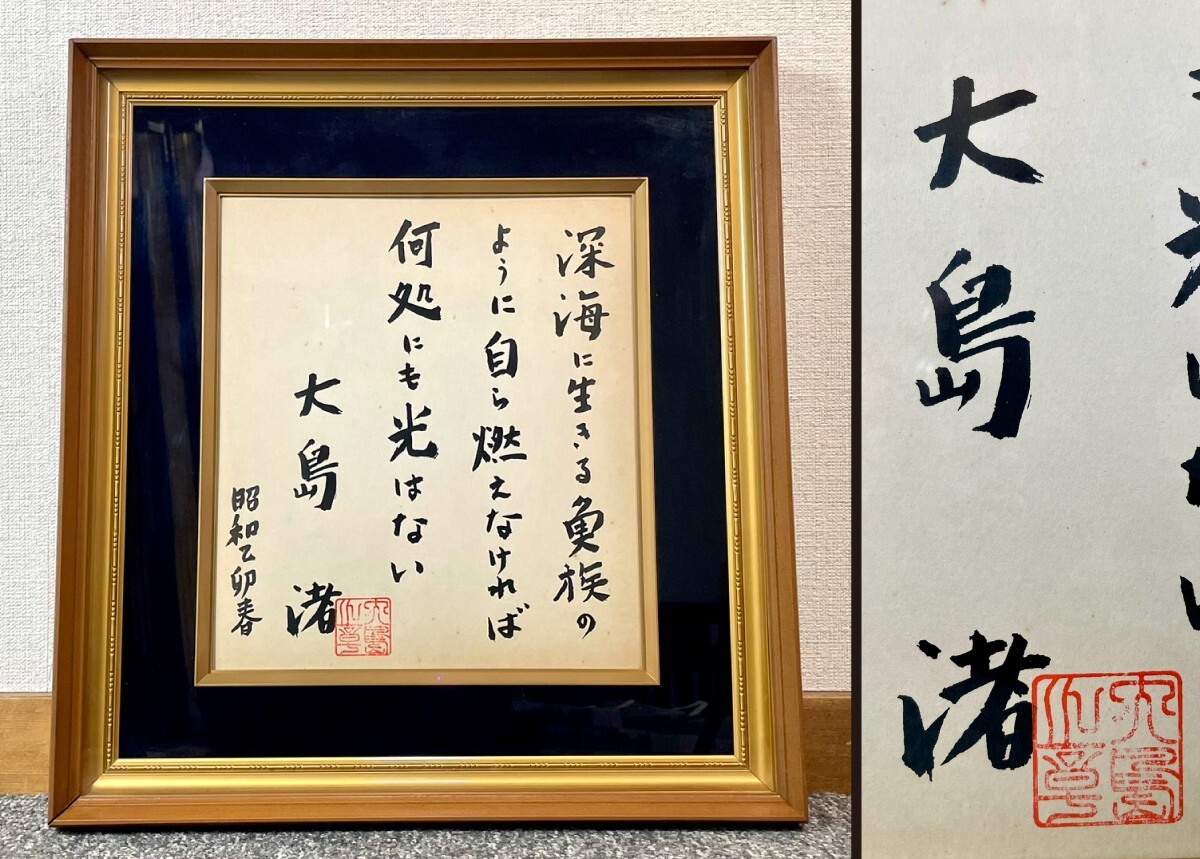 深海に生きる魚族の
ように自ら燃えなければ
何処にも光はない
大島 渚
昭和乙卯春
大島 渚